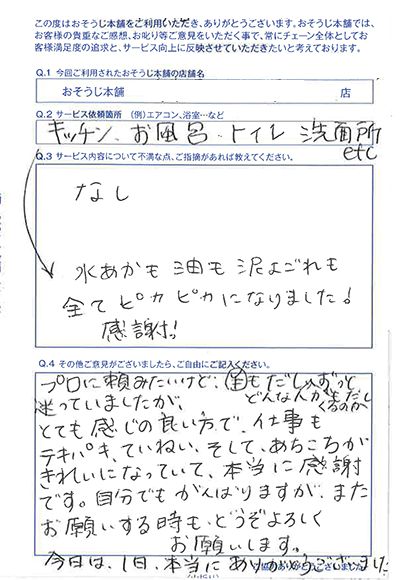 この度はおそうじ本舗をご利用いただき、ありがとうございます。おそうじ本舗では、
お客様の貴重なご感想、お叱り等ご意見をいただく事で、常にチェーン全体としてお
客様満足度の追求と、サービス向上に反映させていただきたいと考えております。
Q.1 今回ご利用されたおそうじ本舗の店舗名
おそうじ本舗 店
Q.2 サービス依頼箇所 (例)エアコン、浴室…など
キッチン、お風呂・トイレ 洗面所
etc
Q.3 サービス内容について不満な点、ご指摘があれば教えてください。
なし
水あかも油も泥よごれも
全てピカピカになりました!
感謝!!
Q.4 その他ご意見がございましたら、ご自由にご記入ください。
プロに頼みたいけど、金もだし、ずっと
どんな人が来るのか
迷っていましたが、
とても感じの良い方で、仕事も
テキパキ、ていねい、そして、あちこちが
きれいになっていて、本当に感謝
です。自分でもがんばりますが、また
お願いする時も、どうぞよろしく
お願いします。
今日は、1日、本当にありがとうございました